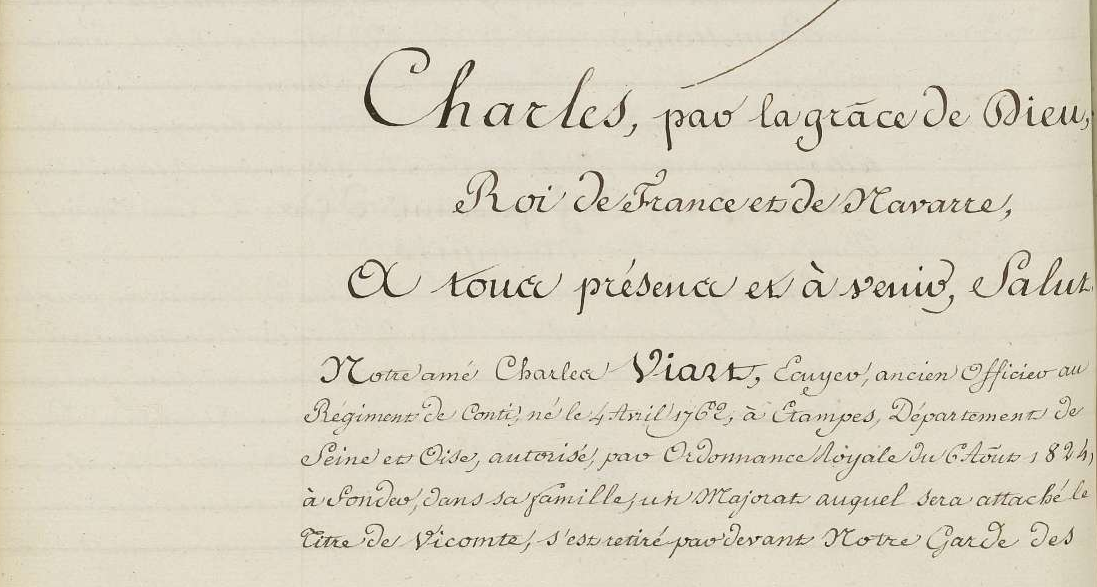 Charles, par la grâce de Dieu,
Roi de France et de Navarre,
A tous présens et à venir, Salut.
Notre amé Charles Viart, Ecuyer, ancien Officier au
Régiment de Conti, né le 4 Avril 1762, à Etampes, Département de
Seine et Oise, autorisé, par Ordonnance Royale du 6 Août 1824,
à fonder, dans sa famille, un Majorat auquel sera attaché le
Titre de Vicomte, s'est retiré pardevant Notre Garde des